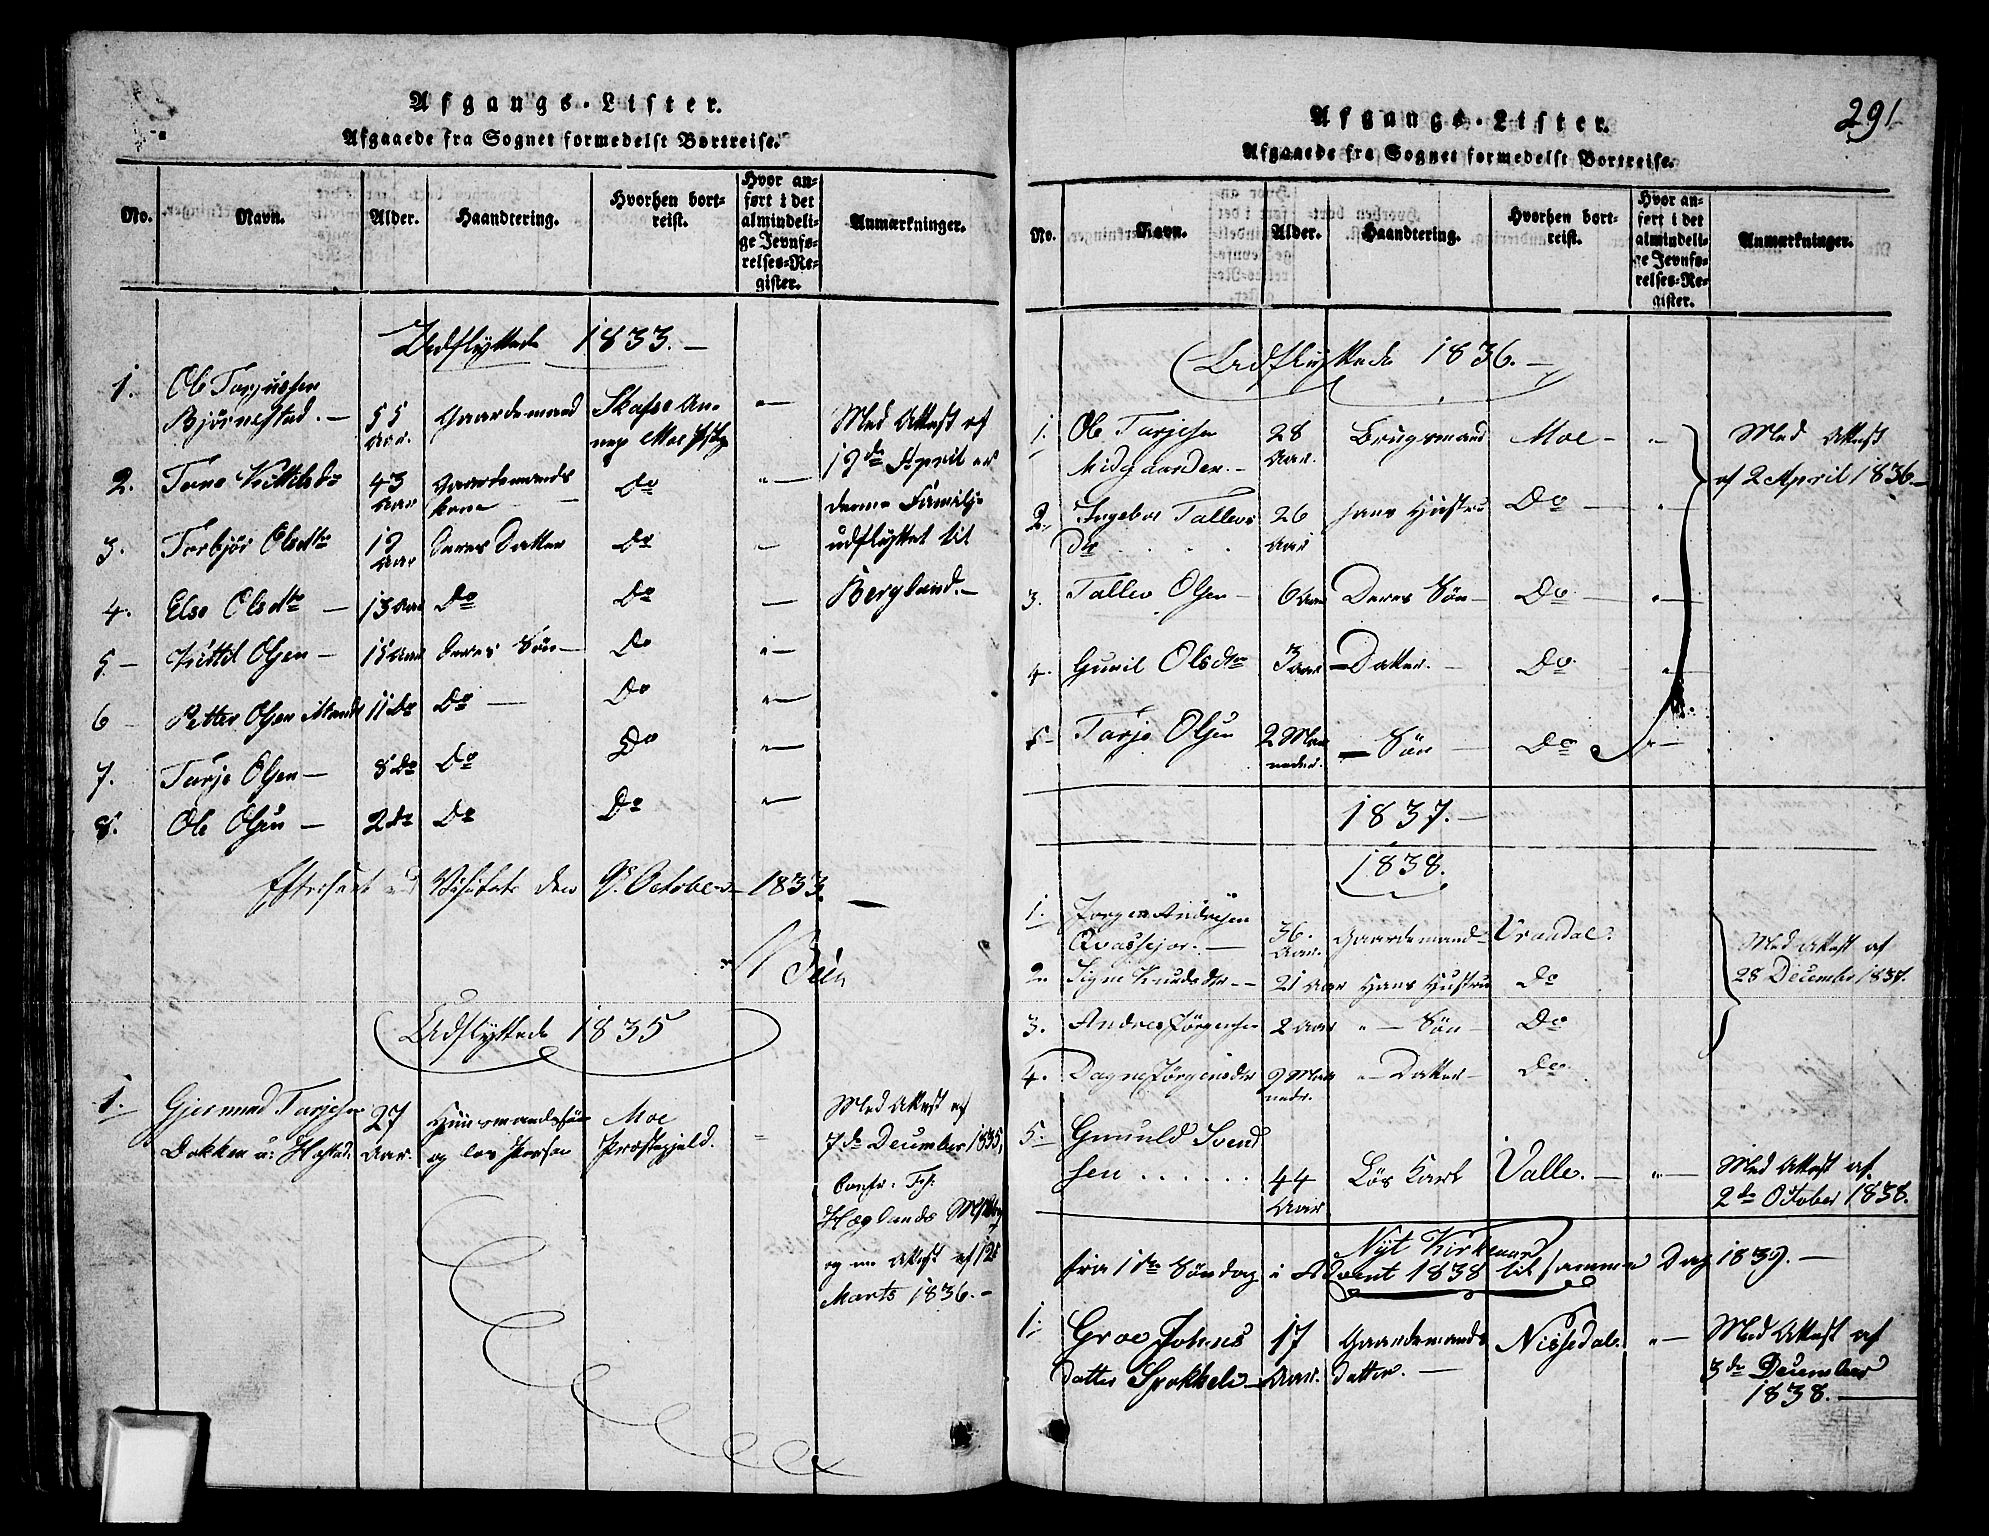 Afgangs-Lister.
Afgaaede fra Sognet formedelst Bortreise.
No.
Navn.
Alder.
Haandtering.
Hvorhen bort-
reist.
Hvor an-
ført i det
almindeli-
ge Jevnfø-
relses-Re-
gister.
Anmærkninger.
Udflyttede 1833.
1.
Ole Torjussen
Bjørnestad.
55
Aar.
Gaardemand
Moe
Med Attest af
19de April er
denne Familje
udflyttet til
Bergland.
2.
Tone Kittilsdr
43
Aar
Gaardemands
kone
Do
3.
Torbjør Olsdtr
19
Aar
Deres Datter
Do
4.
Else Olsdtr
13 Aar
Do
Do
5
Kittil Olsen
15 Aar
Deres Søn
Do
6
Petter Olsen
11 Do
Do
Do
7.
Tarje Olsen
8 Do
Do
Do
8.
Ole Olsen
2 do
Do
Do
Efterseet ved Visitats den 9. October 1833.
Udflyttede 1835
1.
Gjermund Tarjesen
Dokken u: Høstad
27
Aar.
Huusmandssøn
og løs Person
Moe
Præstegjeld.
Med Attest af
7de December 1835,
Høglands
og en Attest af 12
Marts 1836.
291
Afgangs-Lister.
Afgaaede fra Sognet formedelst Bortreise.
No.
Navn.
Alder.
Haandtering.
Hvorhen bort-
reist.
Hvor an-
ført i det
almindeli-
ge Jevnfø-
relses-Re-
gister.
Anmærkninger.
Udflyttede 1836.
1.
Ole Tarjesen
Midgaarden.
28
Aar.
Brugsmand
Moe
Med Attest
af 2 April 1836
2.
Ingebor Tallevs
Dtr
26
Aar
Hans Hustru
Do
3.
Tallev Olsen
6 Aar
Deres Søn
Do
4.
Guril Olsdtr
3 Aar
Datter.
Do
5
Tarje Olsen
2 Maa
neder.
Søn
Do
1837.
1838.
1.
Jørgen Andresen
Qvassejor.
36.
Aar.
Gaardemand
Vraadal.
Med Attest af
28 December 1837.
2.
Signe Knudsdtr
21 Aar
Hans Hustru
Do
3.
Andres Jørgensen
2 Aar
Søn
Do
4.
Dagne Jørgensdtr
9 Maa
neder.
Datter
Do
5.
Gunuld Svend
sen
44
Aar
Løs Karl
Valle.
Med Attest af
2de October 1838.
Nyt Kirkeaar
fra 1ste Søndag i Advent 1838 til samme Dag 1839.
1.
Groe Johns
datter Spokkeli
17
Aar.
Gaardemands
datter.
Nissedal.
Med Attest af
3de December
1838.